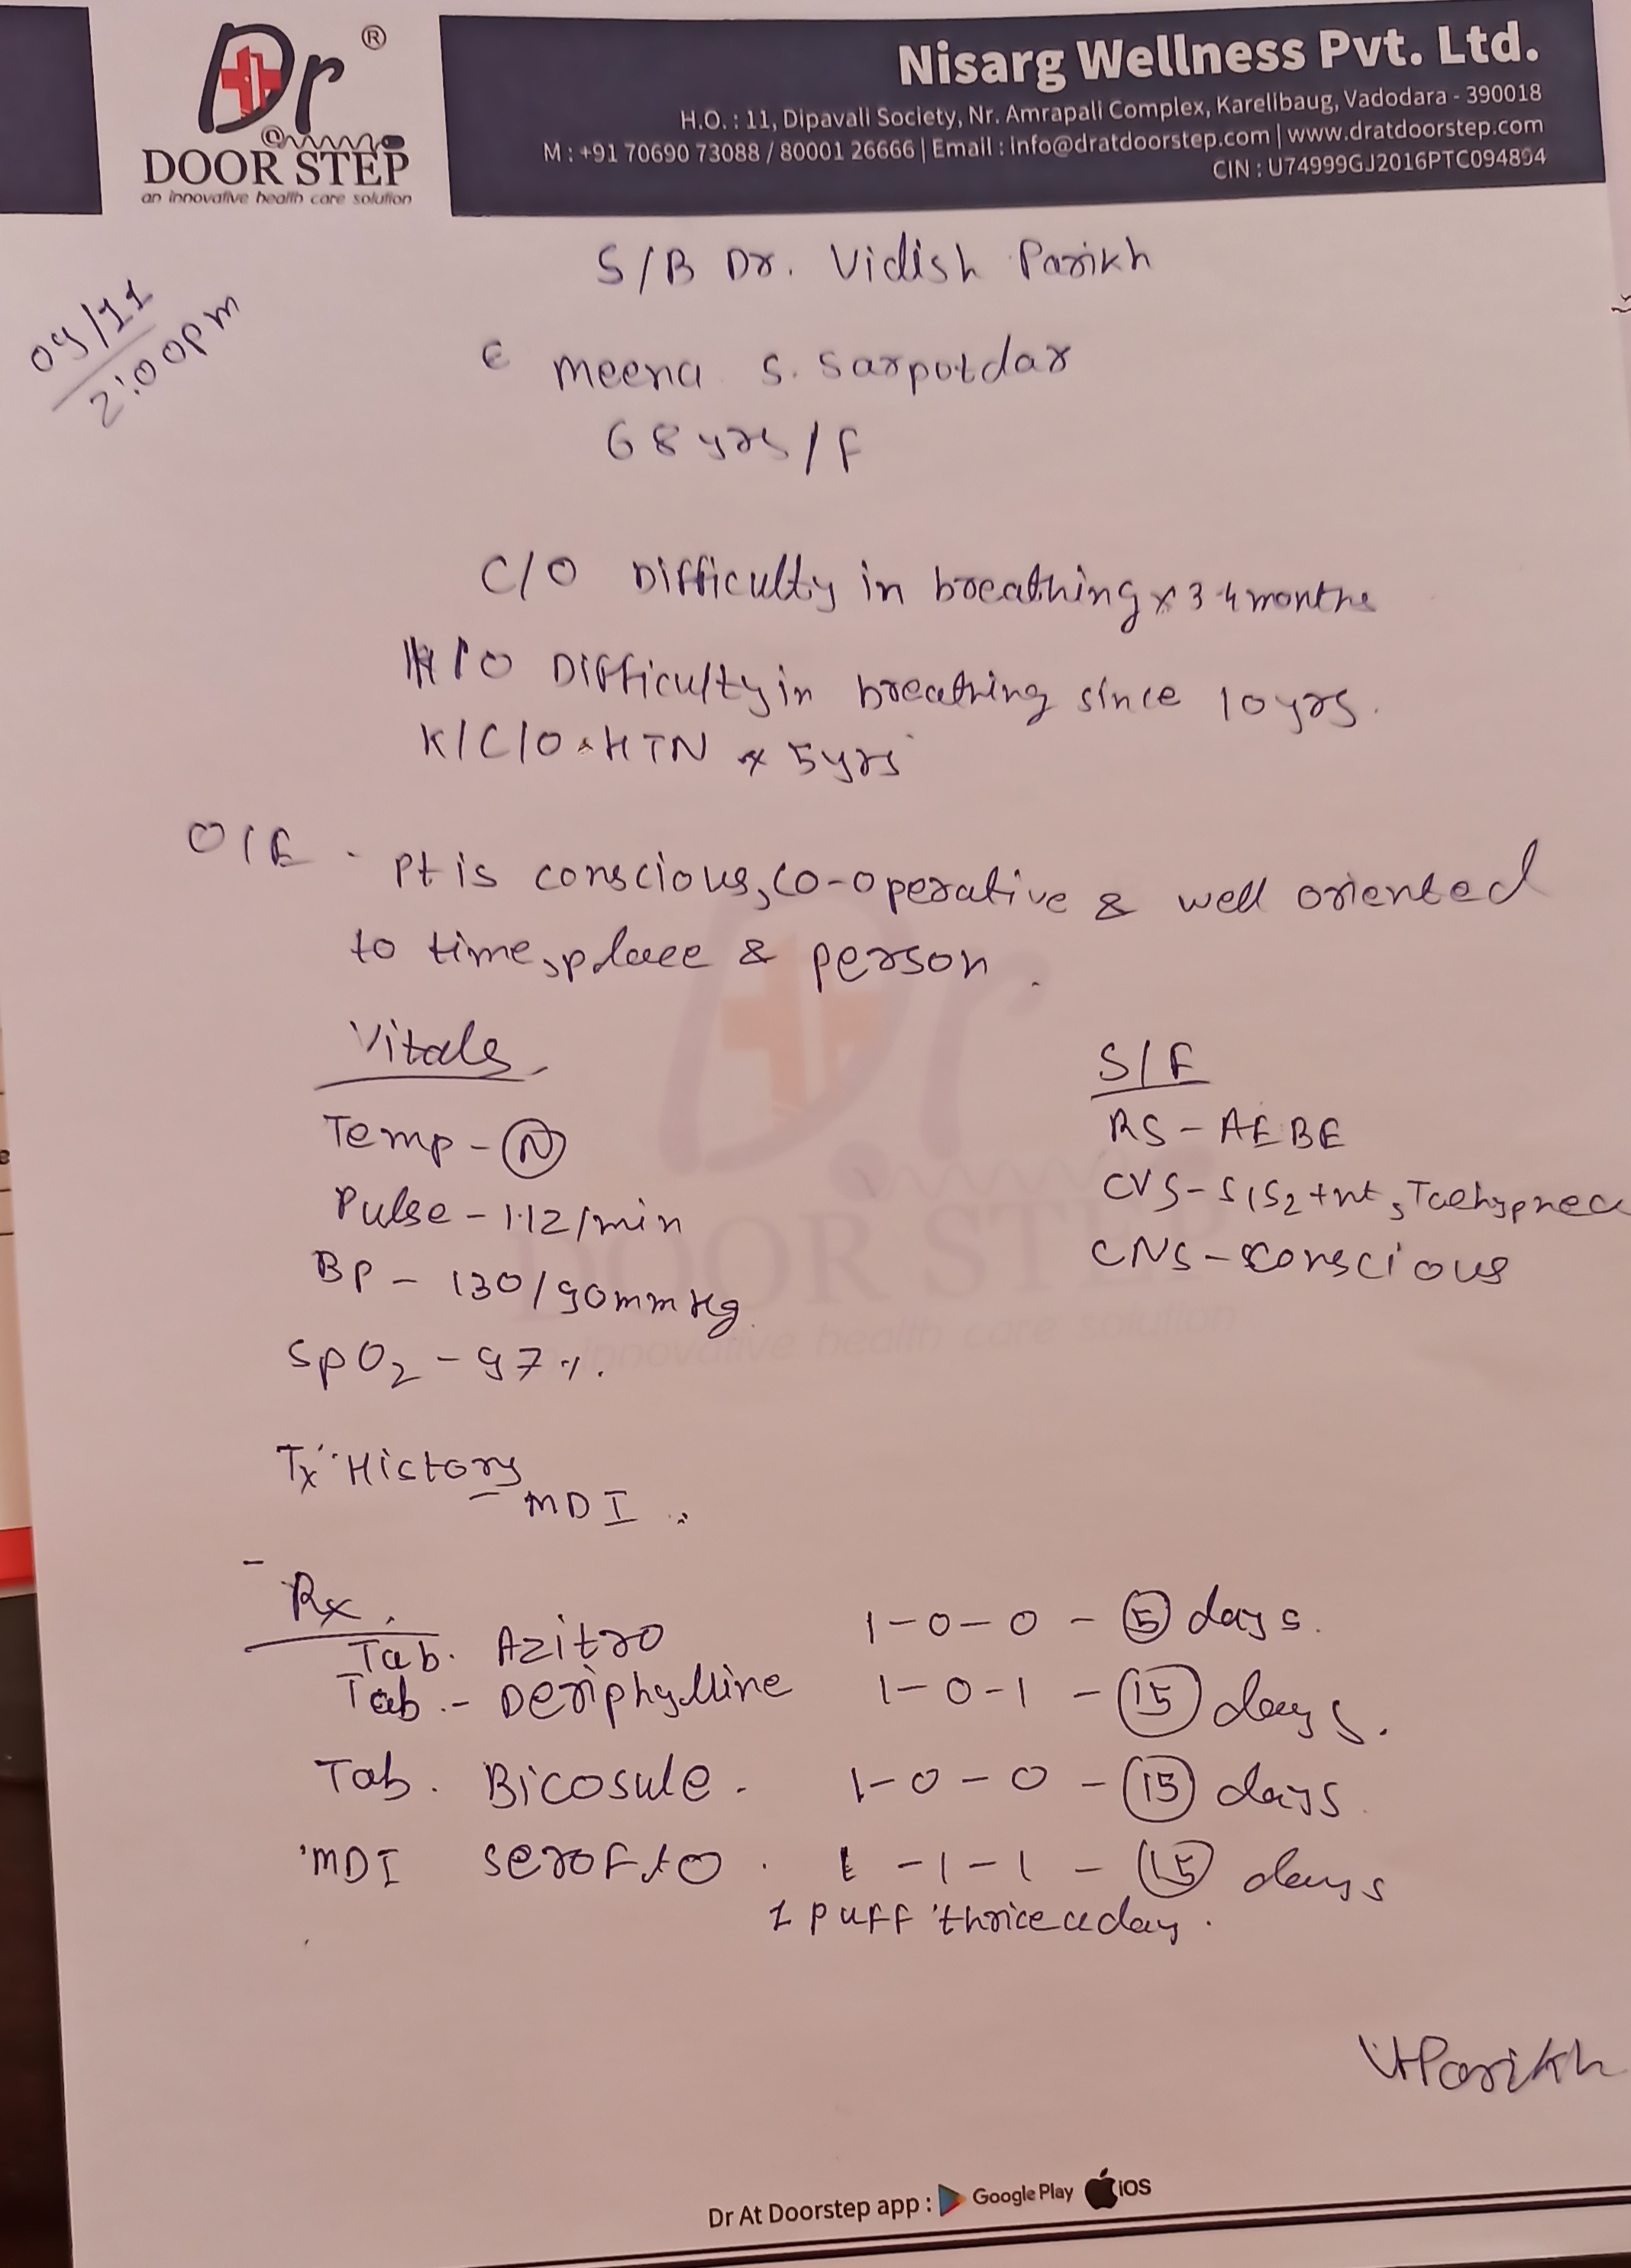 Dr ®
@
DOOR STEP
an innovative health care solution
Nisarg Wellness Pvt. Ltd.
H.O. : 11, Dipavali Society, Nr. Amrapali Complex, Karelibaug, Vadodara - 390018
M : +91 70690 73088 / 80001 26666 | Email : info@dratdoorstep.com | www.dratdoorstep.com
CIN : U74999GJ2016PTC094894
09/11
2:00pm
S/B Dr. Vidish Parikh
Meena S. Sarpotdar
68 yrs / F
C/O Difficulty in breathing x 3-4 months
H/O Difficulty in breathing since 10 yrs.
K/C/O HTN x 5 yrs
O/E - Pt is conscious, co-operative & well oriented
to time, place & person.
Vitals
Temp - N
Pulse - 112/min
BP - 130/90 mmHg
SpO2 - 97 %.
S/E
RS - AEBE
CVS - S1S2 +nt, Tachypnea
CNS - conscious
Tx History
- MDI
Rx.
Tab. Azitro 1-0-0 - 5 days.
Tab. - Deriphylline 1-0-1 - 15 days.
Tab. Bicosule - 1-0-0 - 15 days.
MDI seroflo . 1-1-1 - 15 days
1 puff thrice a day.
VParikh
Dr At Doorstep app : Google Play iOS